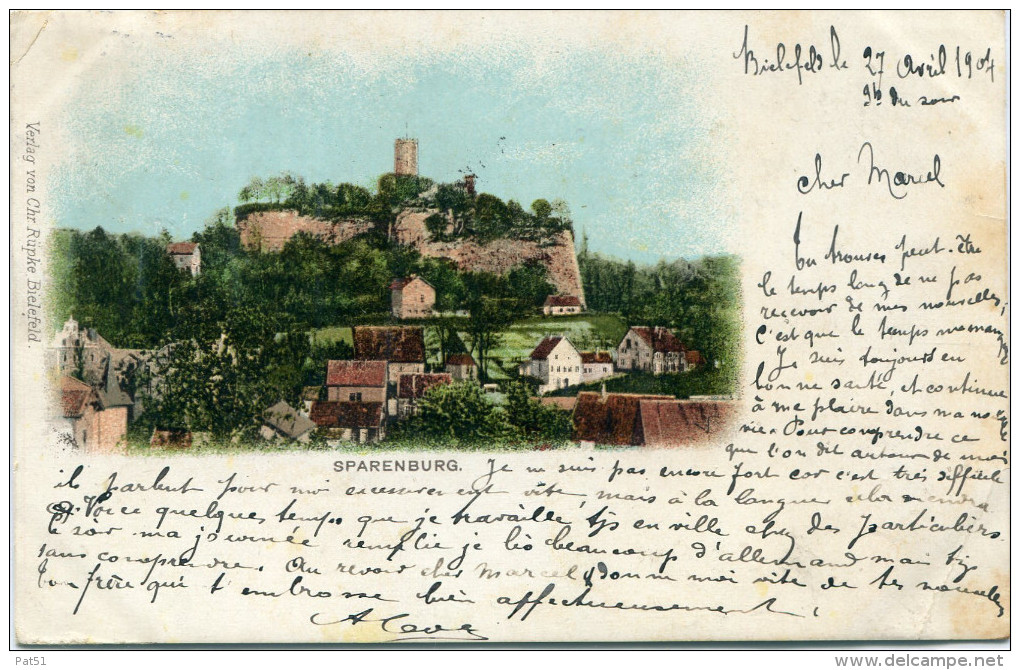 Bielefeld le 27 Avril 1904
9h du soir
cher Marcel
Tu trouves peut-être
le temps long de ne pas
recevoir de mes nouvelles,
c'est que le temps me manque
Je suis toujours en
bonne santé, et continue
à me plaire dans ma nou
velle vie. Pour comprendre ce
que l'on dit autour de moi
SPARENBURG. Je ne suis pas encore fort car c'est très difficile
il parlent pour moi excessivement vite, mais à la longue cela viendra
Voici quelques temps que je travaille en ville chez des particuliers
le soir ma journée remplie je lis beaucoup d'allemand mais
sans comprendre. Au revoir cher Marcel donne moi vite de tes nouvelles
Ton frère qui t'embrasse bien affectueusement,
Verlag von Chr Rüpke Bielefeld.
Pat51
delcampe.net